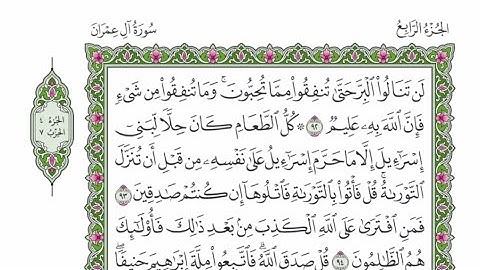 الجُزْءُ الرَّابِعُ
سُورَةُ آلِ عِمْرَانَ
لَن تَنَالُوا۟ ٱلْبِرَّ حَتَّىٰ تُنفِقُوا۟ مِمَّا تُحِبُّونَ ۚ وَمَا تُنفِقُوا۟ مِن شَىْءٍ
فَإِنَّ ٱللَّهَ بِهِۦ عَلِيمٌ ٩٢ ۞ كُلُّ ٱلطَّعَامِ كَانَ حِلًّا لِّبَنِىٓ
إِسْرَٰٓءِيلَ إِلَّا مَا حَرَّمَ إِسْرَٰٓءِيلُ عَلَىٰ نَفْسِهِۦ مِن قَبْلِ أَن تُنَزَّلَ
ٱلتَّوْرَىٰةُ ۗ قُلْ فَأْتُوا۟ بِٱلتَّوْرَىٰةِ فَٱتْلُوهَآ إِن كُنتُمْ صَٰدِقِينَ ٩٣
فَمَنِ ٱفْتَرَىٰ عَلَى ٱللَّهِ ٱلْكَذِبَ مِنۢ بَعْدِ ذَٰلِكَ فَأُو۟لَٰٓئِكَ
هُمُ ٱلظَّٰلِمُونَ ٩٤ قُلْ صَدَقَ ٱللَّهُ ۗ فَٱتَّبِعُوا۟ مِلَّةَ إِبْرَٰهِيمَ حَنِيفًا ۖ
الجزء ٤
الحزب ٧